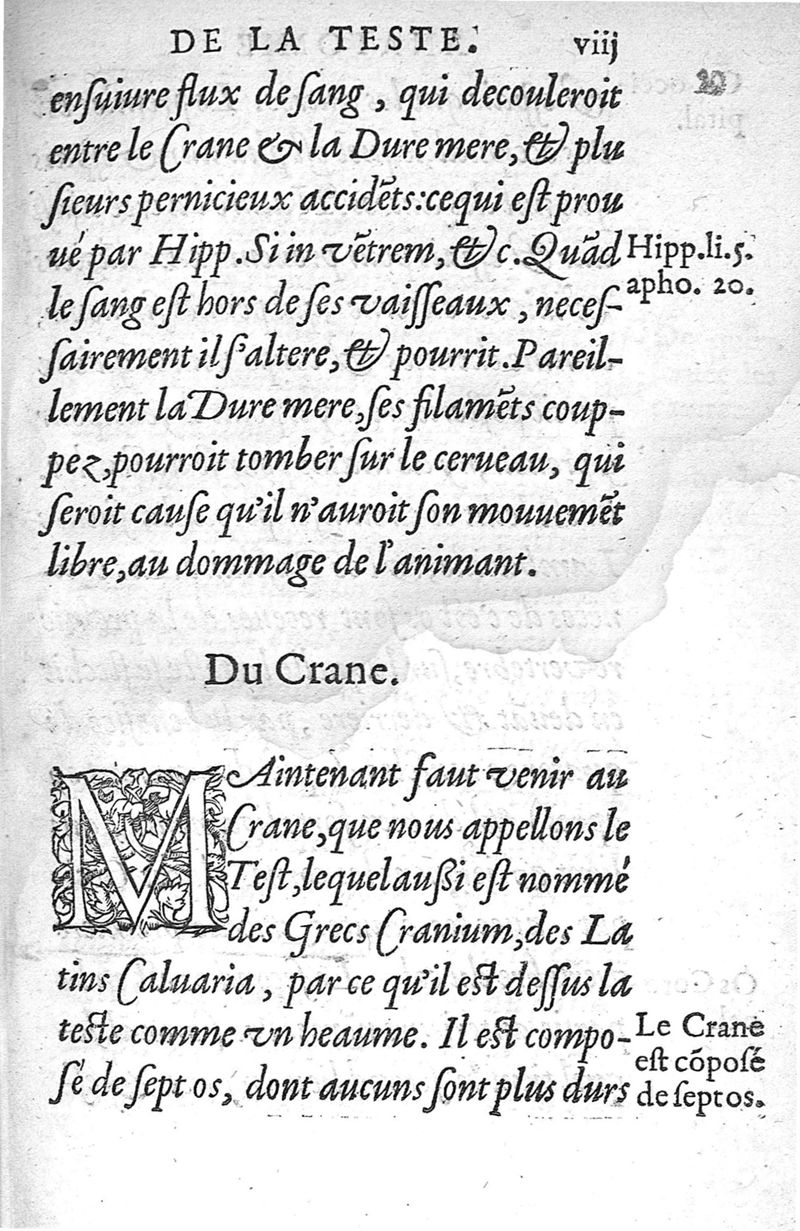 DE LA TESTE. viij
enſuiure flux de ſang, qui decouleroit
entre le Crane & la Dure mere, & plu
ſieurs pernicieux accidẽts: cequi eſt prou
ué par Hipp. Si in vẽtrem, & c. Quãd
Hipp. li. 5.
apho. 20.
le ſang eſt hors de ſes vaiſſeaux, neceſ-
ſairement il ſ'altere, & pourrit. Pareil-
lement la Dure mere, ſes filamẽts coup-
pez, pourroit tomber ſur le cerueau, qui
ſeroit cauſe qu'il n'auroit ſon mouuemẽt
libre, au dommage de l'animant.
Du Crane.
MAintenant faut venir au
Crane, que nous appellons le
Teſt, lequel auſsi eſt nommé
des Grecs Cranium, des La
tins Caluaria, par ce qu'il eſt deſſus la
teſte comme vn heaume. Il eſt compo-
ſé de ſept os, dont aucuns ſont plus durs
Le Crane
eſt cõpoſé
de ſept os.